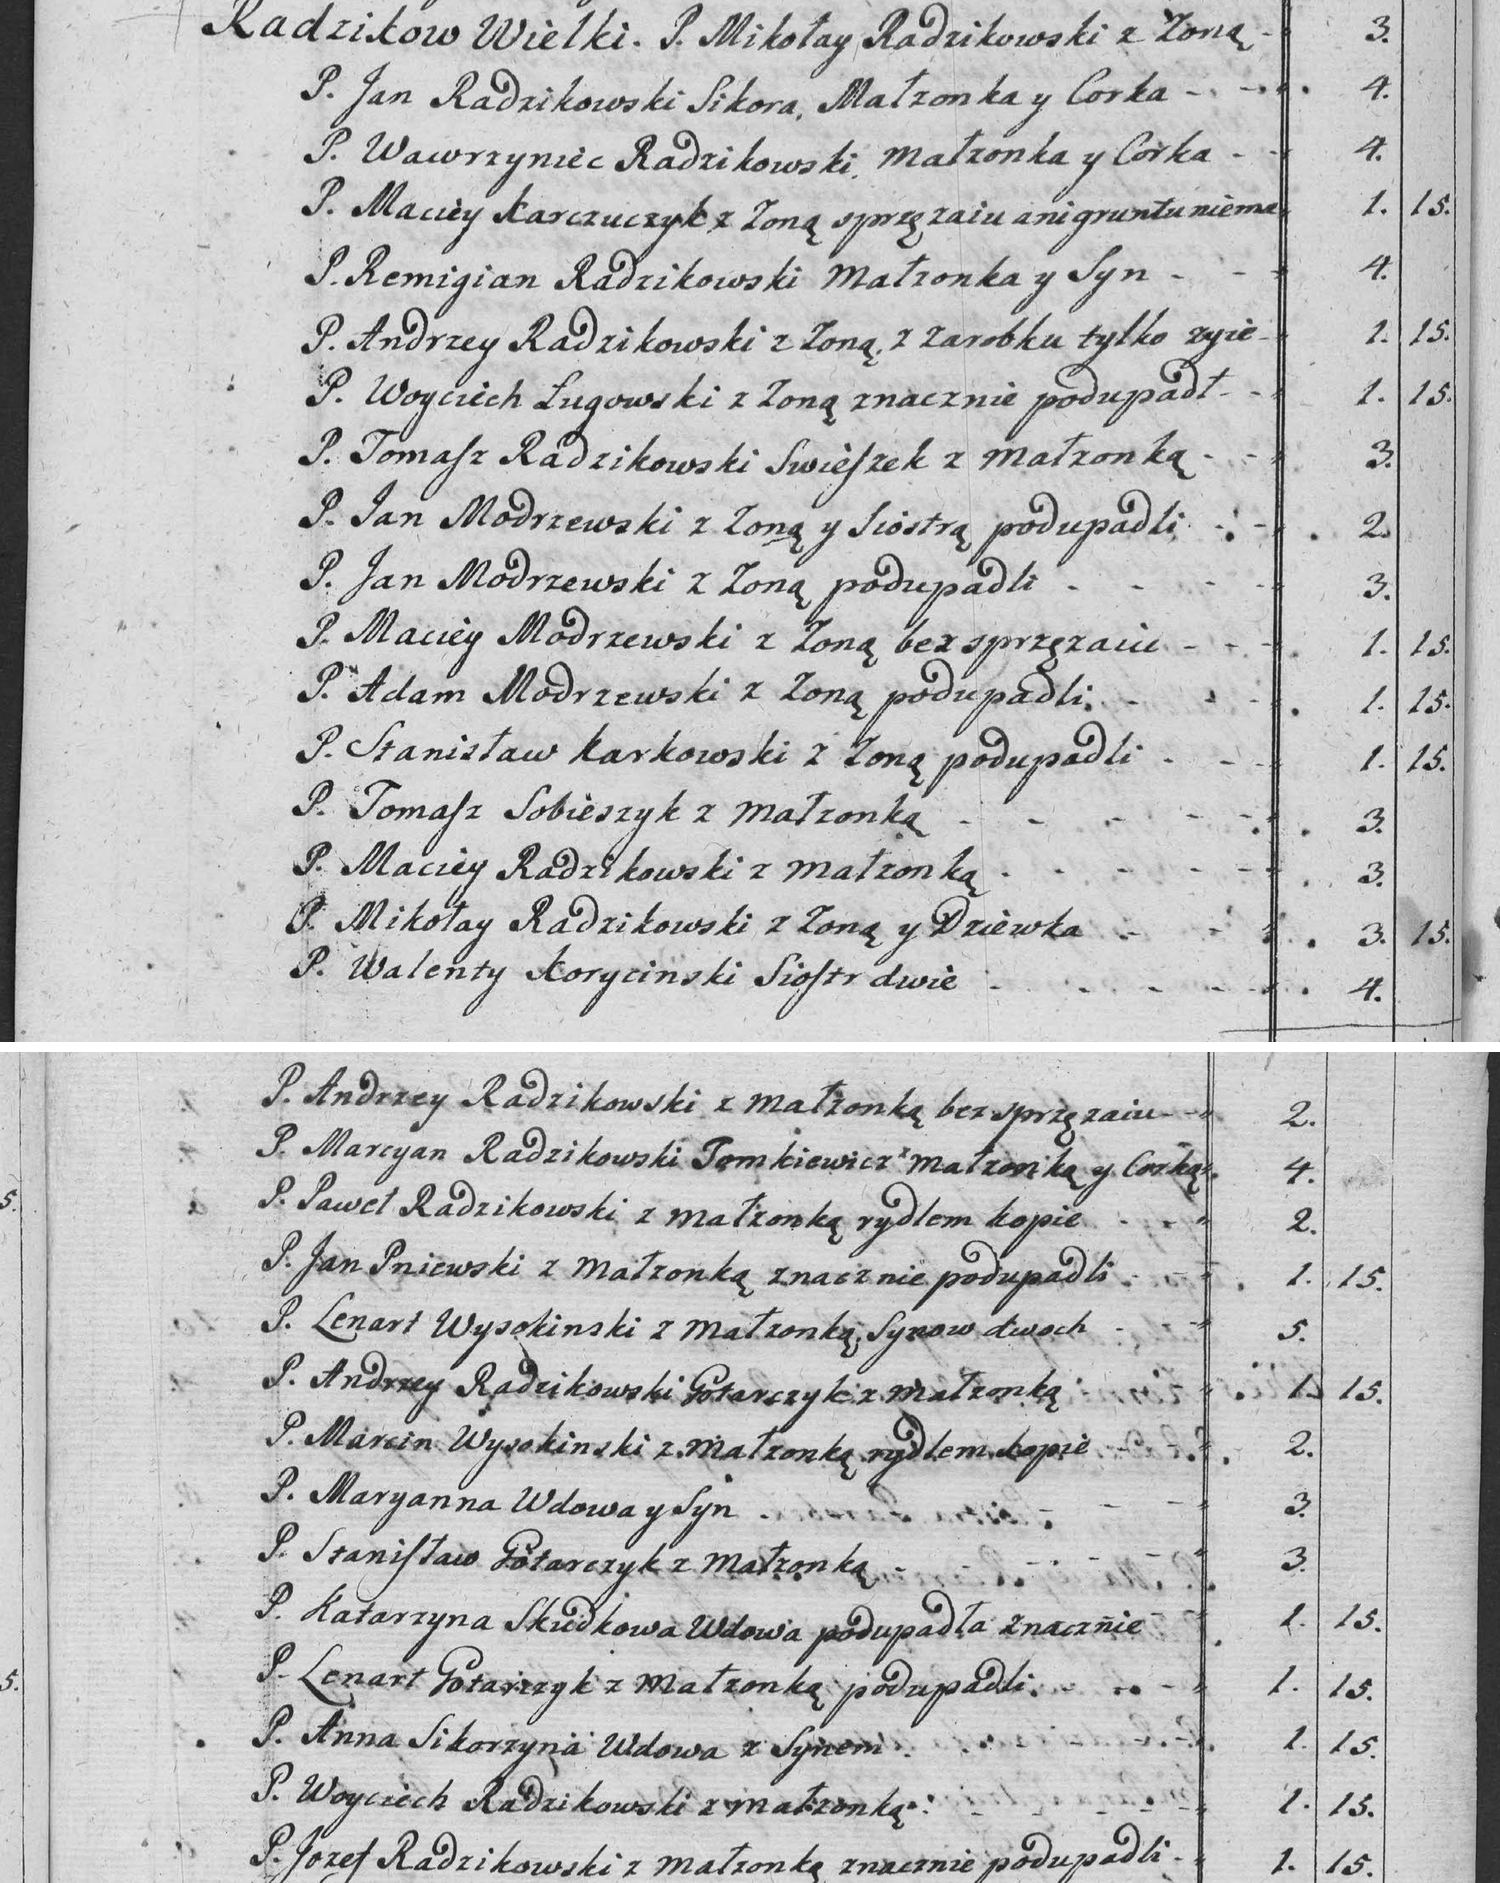 Radzikow Wielki. P. Mikołay Radzikowski z Zoną - 3.
P. Jan Radzikowski Sikora, Małzonka y Corka - - 4.
P. Wawrzyniec Radzikowski, Małzonka y Corka - - 4.
P. Maciey Karczuczyk z Zoną sprzęzaiu ani gruntu niema 1. 15.
P. Remigian Radzikowski Małzonka y Syn - - - 4.
P. Andrzey Radzikowski z Zoną, z zarobku tylko zyie - 1. 15.
P. Woyciech Ługowski z Zoną znacznie podupadł - - 1. 15.
P. Tomasz Radzikowski Swieszek z Małzonką - - - 3.
P. Jan Modrzewski z Zoną y Siostrą podupadli - - 2.
P. Jan Modrzewski z Zoną podupadli - - - - 3.
P. Maciey Modrzewski z Zoną bez sprzęzaiu - - - 1. 15.
P. Adam Modrzewski z Zoną podupadli. - - - 1. 15.
P. Stanisław Karkowski z Zoną podupadli - - - 1. 15.
P. Tomasz Sobieszyk z Małzonką - - - - - - 3.
P. Maciey Radzikowski z Małzonką - - - - - - 3.
P. Mikołay Radzikowski z Zoną y Dziewka - - - 3. 15.
P. Walenty Korycinski Siostr dwie - - - - - 4.
P. Andrzey Radzikowski z Małzonką bez sprzęzaiu - - 2.
P. Marcyan Radzikowski Tomkiewicz z Małzonką y Corką 4.
P. Paweł Radzikowski z Małzonką rydlem kopie - - - 2.
P. Jan Pniewski z Małzonką znacznie podupadli - - - 1. 15.
P. Lenart Wysokinski z Małzonką, Synow dwoch - - 5.
P. Andrzey Radzikowski Gotarczyk z Małzonką - 1. 15.
P. Marcin Wysokinski z Małzonką rydlem kopie - - - 2.
P. Maryanna Wdowa y Syn - - - - - 3.
P. Stanisław Gotarczyk z Małzonką - - - - - 3.
P. Katarzyna Skudkowa Wdowa podupadła znacznie - 1. 15.
P. Lenart Gotarczyk z Małzonką podupadli. - - - 1. 15.
P. Anna Sikorzyna Wdowa z Synem - - - 1. 15.
P. Woyciech Radzikowski z Małzonką - - - - - 1. 15.
P. Jozef Radzikowski z Małzonką znacznie podupadli - - 1. 15.